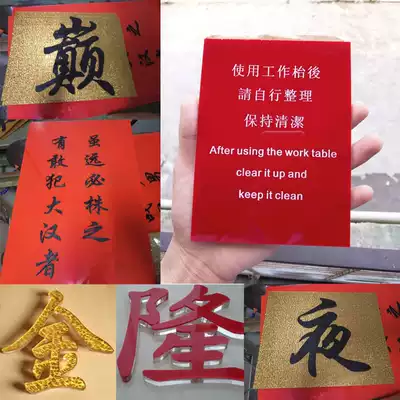 巅
使用工作枱後
請自行整理
保持清潔
After using the work table
clear it up and
keep it clean
有敢犯大汉者
虽远必株之
金
隆
夜